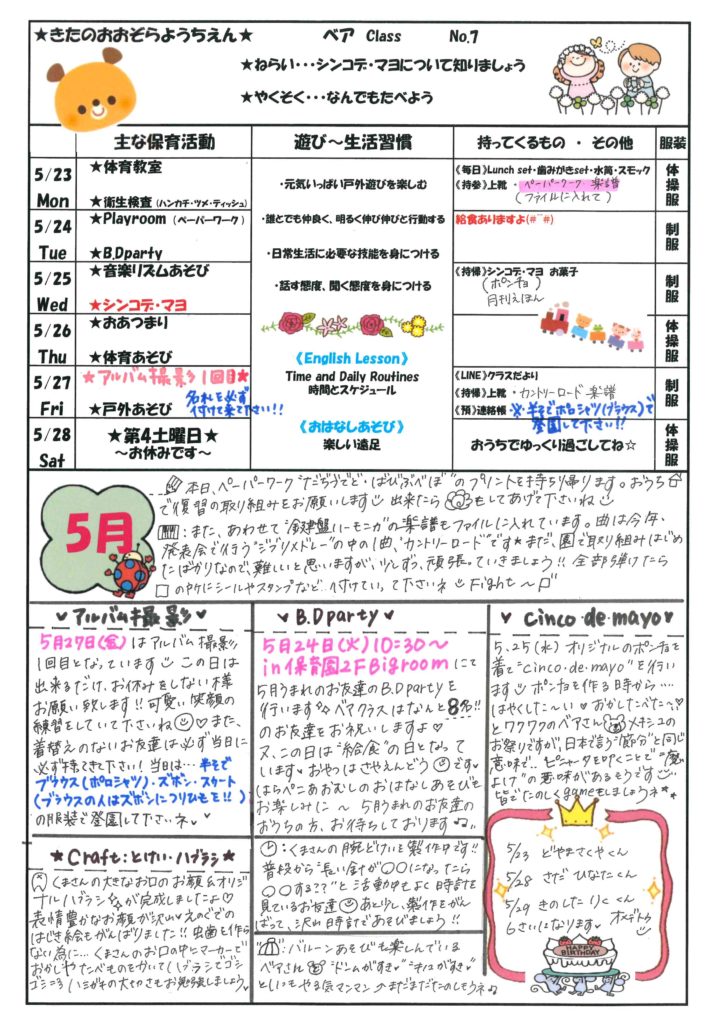 ★きたのおおぞらようちえん★ ベア Class No.7
★ねらい・・・シンコデ・マヨについて知りましょう
★やくそく・・・なんでもたべよう
主な保育活動 遊び～生活習慣 持ってくるもの・その他 服装
5/23 Mon
★体育教室
★衛生検査(ハンカチ・ツメ・ティッシュ)
《毎日》Lunch set・歯みがきset・水筒・スモック
《持参》上靴・ペーパーワーク・楽譜
(ファイルに入れて)
体操服
5/24 Tue
★Playroom (ペーパーワーク)
★B.Dparty
給食ありますよ(#^^#)
制服
5/25 Wed
★音楽リズムあそび
★シンコデ・マヨ
《持帰》シンコデ・マヨ お菓子
(ポンチョ)
月刊えほん
制服
5/26 Thu
★おあつまり
★体育あそび
体操服
5/27 Fri
★アルバム撮影1回目★
★戸外あそび
名札を必ず
付けて来て下さい!!
《LINE》クラスだより
《持帰》上靴・カントリーロード楽譜
《預》連絡帳 ※半そでポロシャツ(ブラウス)で
登園して下さい!!
制服
5/28 Sat
★第4土曜日★
～お休みです～
おうちでゆっくり過ごしてね☆
体操服
・元気いっぱい戸外遊びを楽しむ
・誰とでも仲良く、明るく伸び伸びと行動する
・日常生活に必要な技能を身につける
・話す態度、聞く態度を身につける
《English Lesson》
Time and Daily Routines
時間とスケジュール
《おはなしあそび》
楽しい遠足
5月
本日、ペーパーワーク"だぢづでど・ばびぶべぼ"のプリントを持ち帰ります。おうち
で復習の取り組みをお願いします 出来たら もしてあげて下さいね
:また、あわせて"鍵盤ハーモニカ"の楽譜もファイルに入れています。曲は今年、
発表会で行う"ジブリメドレー"の中の1曲、"カントリーロード"です★まだ、園で取り組みはじめ
たばかりなので、難しいと思いますが、少しずつ、頑張っていきましょう!! 全部弾けたら
□の中にシールやスタンプなど…付けていって下さいネ Fight～
♥アルバム撮影♥
5月27日(金)はアルバム撮影
1回目となっています この日は
出来るだけ、お休みをしない様
お願い致します!!可愛い笑顔の
練習をしていて下さいね♡また、
着替えのないお友達は必ず当日に
必ず持ってきて下さい!当日は…半そで
ブラウス(ポロシャツ)・ズボン・スカート
(ブラウスの人はズボンにつりひもを!!)
の服装で登園して下さいネ♥
♥B.Dparty♥
5月24日(火)10:30～
in保育園2FBigroomにて
5月うまれのお友達のB.Dpartyを
行います ベアクラスはなんと8名!!
のお友達をお祝いしますよ♡
又、この日は"給食"の日となって
います おやつはさやえんどうです
はらぺこあおむしのおはなしあそびも
お楽しみに～ 5月うまれのお友達の
おうちの方、お待ちしております
♥cinco・de・mayo♥
5.25(水) オリジナルのポンチョを
着て"cinco・de・mayo"を行い
ます ポンチョを作る時から…
はやくした～い♡おかしたべた～い♡
とワクワクのベアさん メキシコの
お祭りですが、日本で言う"節分"と同じ
意味で…ピニャータをわることで"魔
よけ"の意味があるそうです
皆でたのしくgameもしましょうネ
★Craft:とけい・ハブラシ★
くまさんの大きなお口のお顔&オリジ
ナルハブラシが完成しましたよ♡
表情豊かなお顔が沢山♥えのぐでの
はじき絵もがんばりました!! 虫歯を作ら
ない為に…くまさんのお口の中にマーカーで
おかしやたべものをかいてハブラシでゴシ
ゴシ ハミガキの大切さもお勉強しましょう
:くまさんの腕どけいを製作中です!!
普段から"長い針が〇〇になったら
〇〇する??"と活動中もよく時計を
見ているお友達 あと少し、製作をがん
ばって、沢山時計であそびましょう!!
:バルーンあそびも楽しんでいる
ベアさん "ドームがすき♥""キノコがすき♥"
といつもやる気マンマン まだまだたのしもうネ
5/23 どやまさくやくん
5/28 さだ ひなたくん
5/29 きのした りくくん
6さいになります♥オメデトウ
HAPPY BIRTHDAY